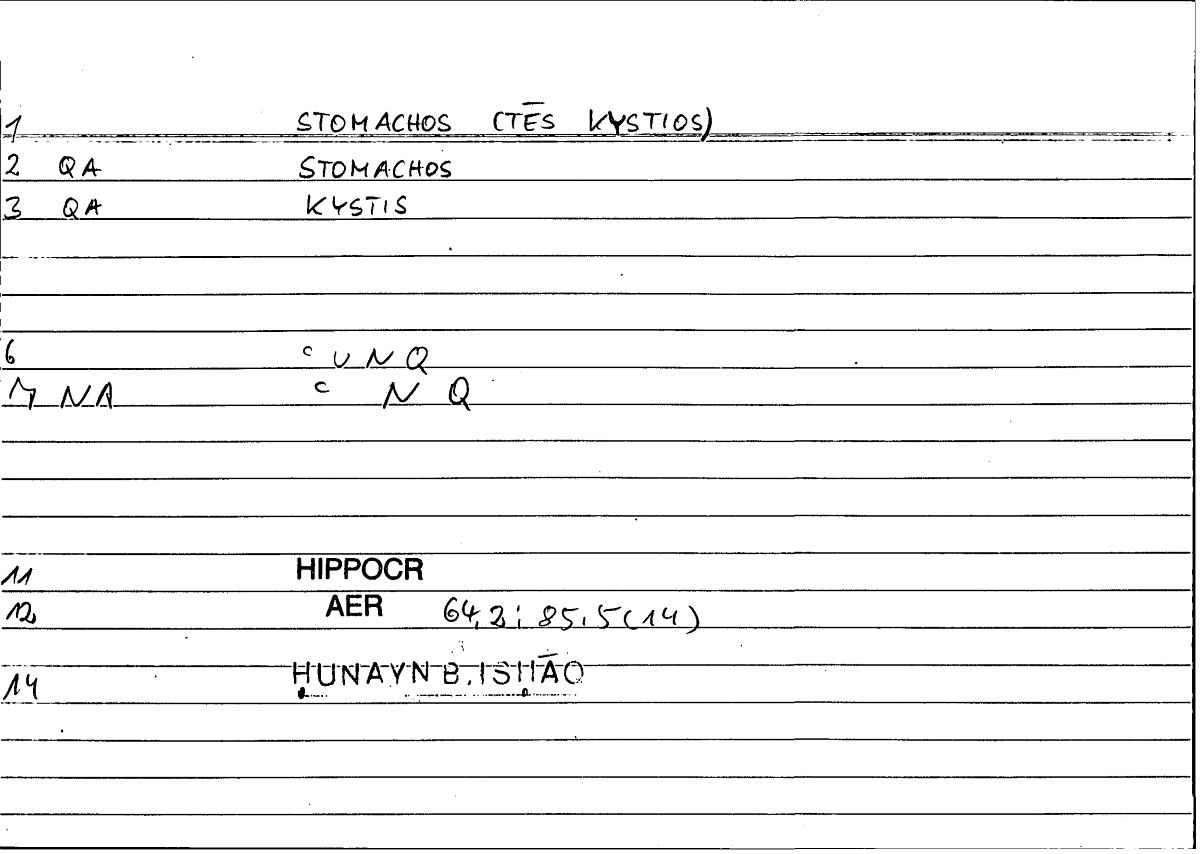 1 STOMACHOS (TĒS KYSTIOS)
2 QA STOMACHOS
3 QA KYSTIS
6 c U N Q
7 NA c N Q
11 HIPPOCR
12 AER 64,2; 85,5(14)
14 ḤUNAYN B. ISḤĀQ